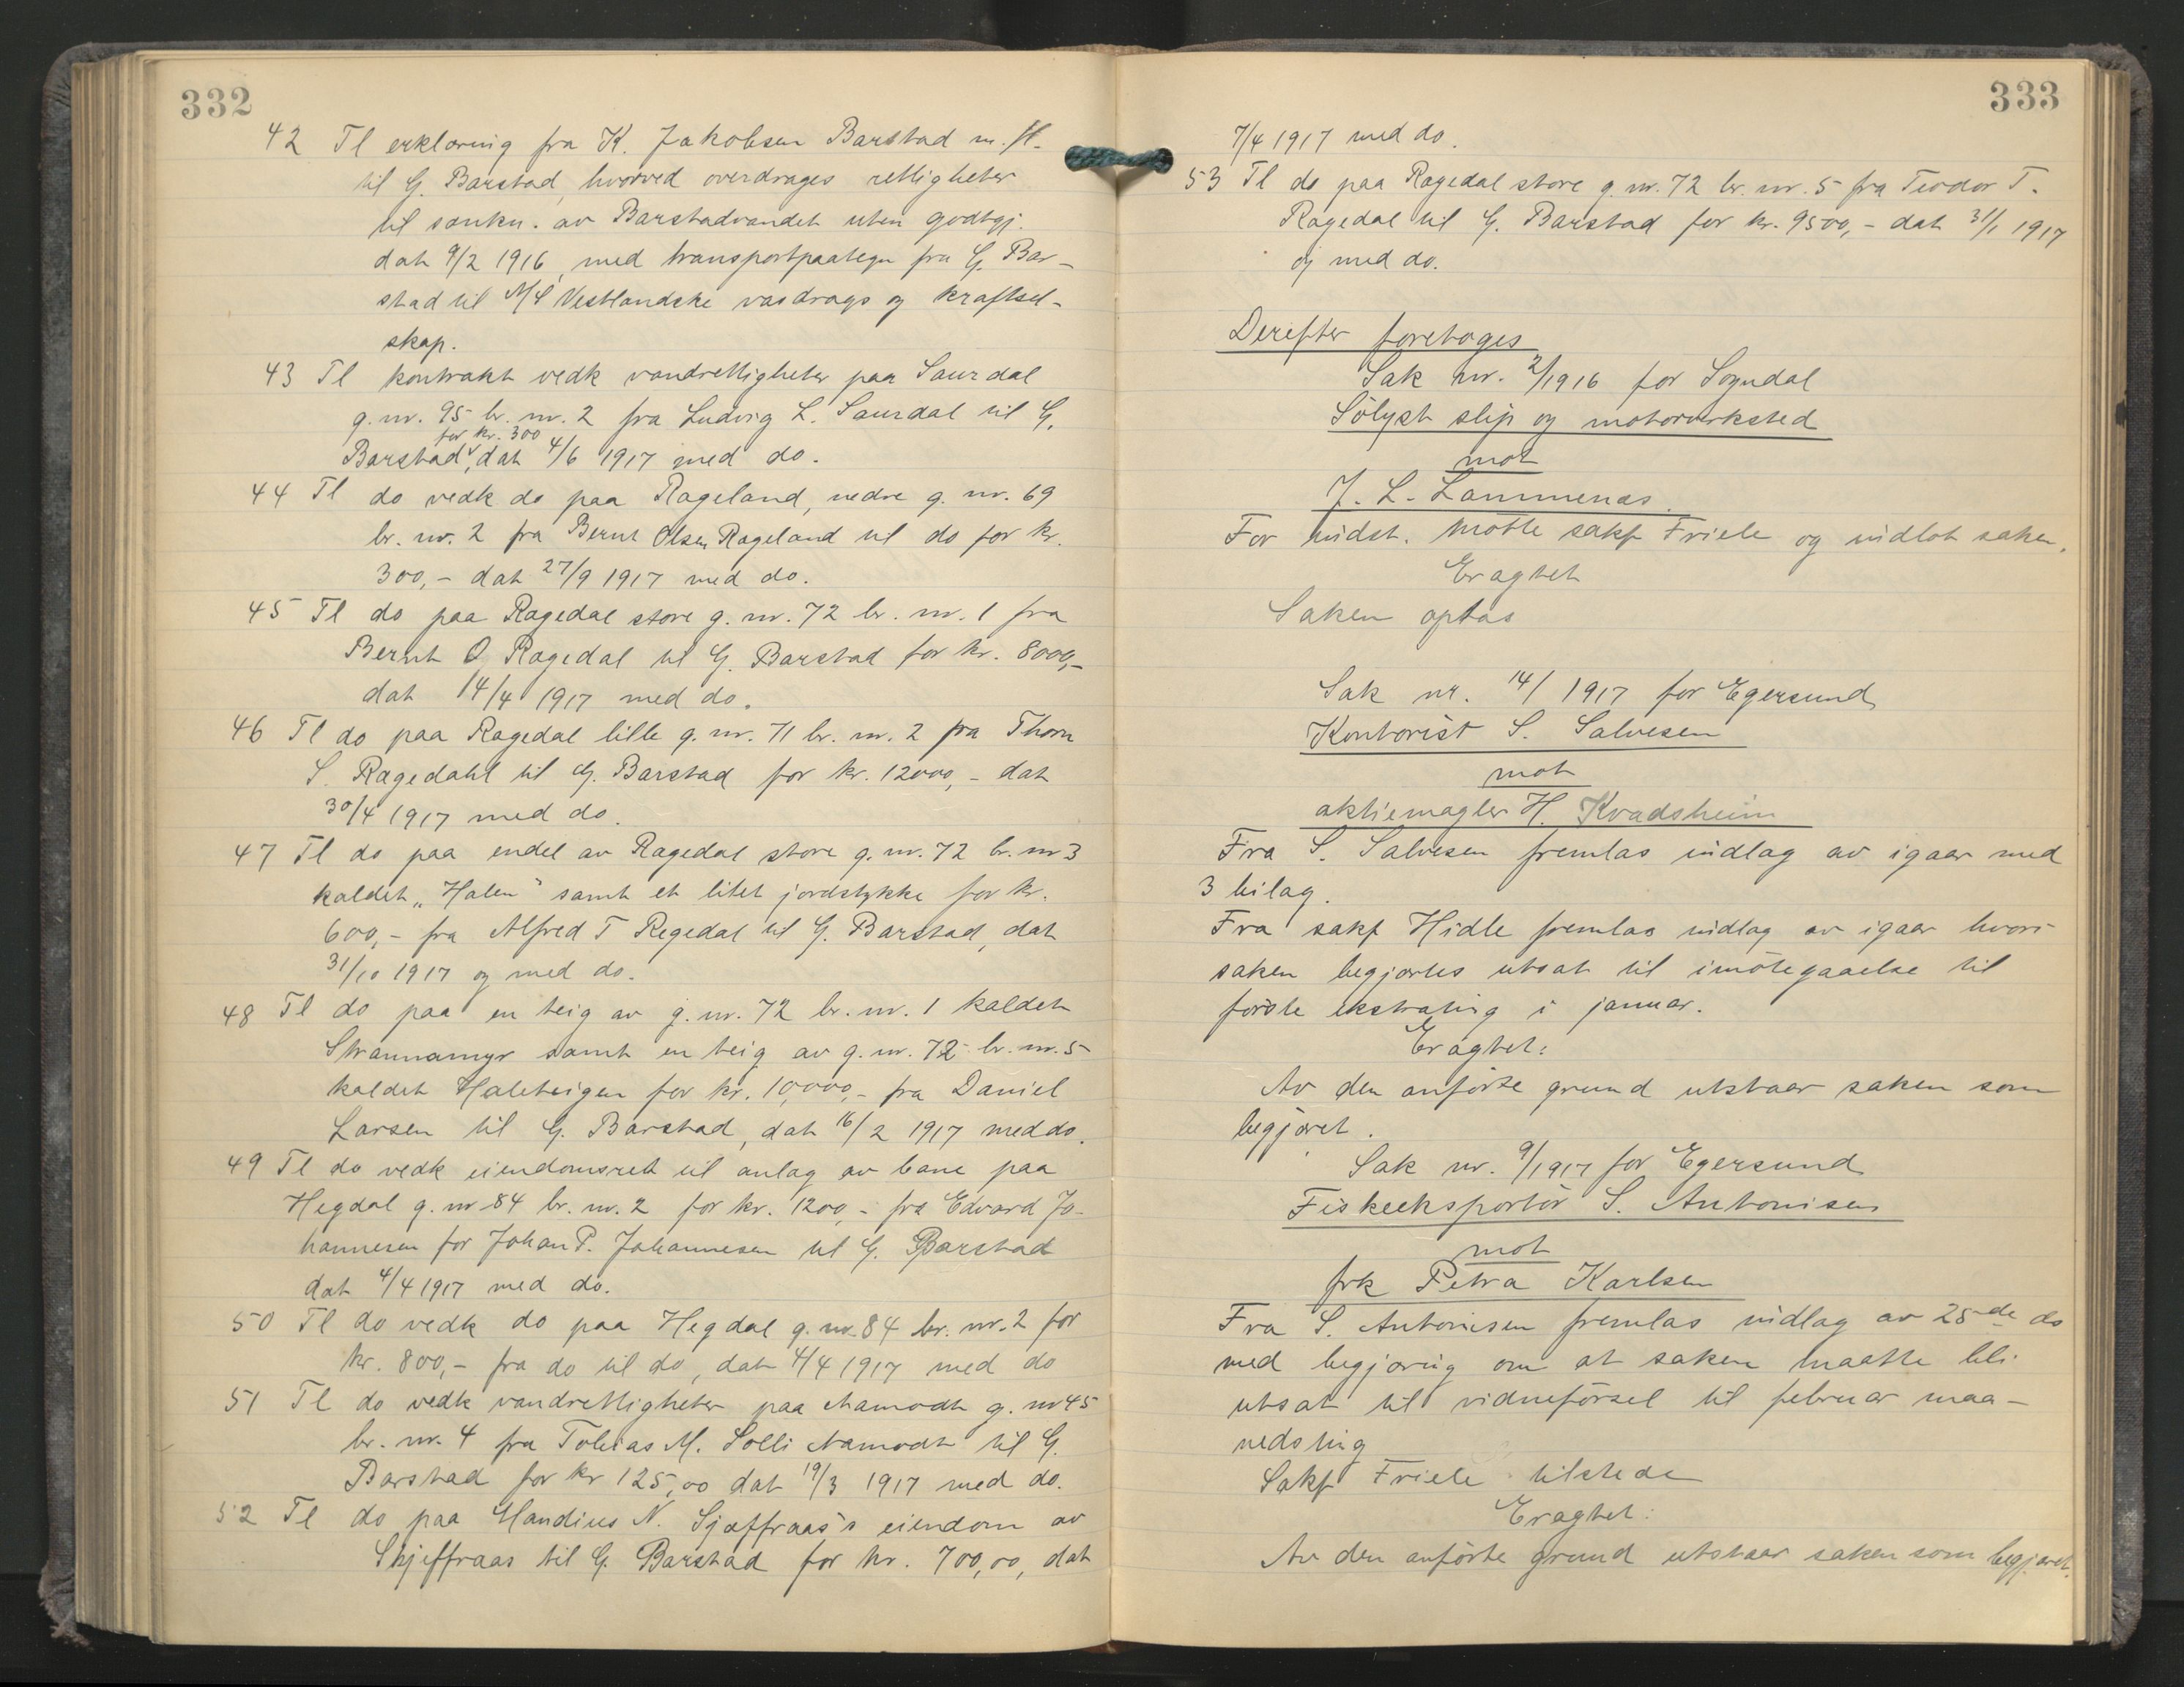 332
42 Tl erklæring fra K. Jakobsen Barstad m. fl.
til G. Barstad, hvorved overdrages rettigheter
til sænkn. av Barstadvandet uten godtgj.
dat 9/2 1916, med transportpaategn fra G. Bar-
stad til A/S Vestlandske vasdrags og kraftsel-
skap.
43 Tl kontrakt vedk vandrettigheter paa Saurdal
g. nr. 95 br. nr. 2 fra Ludvig L. Saurdal til G.
for kr. 300
Barstad, dat 4/6 1917 med do.
44 Tl do vedk do paa Rageland, nedre g. nr. 69
br. nr. 2 fra Bernt Olsen Rageland til do for kr.
300,- dat 27/9 1917 med do.
45 Tl do paa Ragedal store g. nr. 72 br. nr. 1 fra
Bernt O. Ragedal til G. Barstad for kr. 8000,-
dat 14/4 1917 med do.
46 Tl do paa Ragedal lille g. nr. 71 br. nr. 2 fra Thom
S. Ragedahl til G. Barstad for kr. 12000,- dat
30/4 1917 med do.
47 Tl do paa endel av Ragedal store g. nr. 72 br. nr 3
kaldet „Halen" samt et litet jordstykke for kr.
600,- fra Alfred T Regedal til G. Barstad, dat
31/10 1917 og med do.
48 Tl do paa en teig av g. nr. 72 br. nr. 1 kaldet
Strannamyr samt en teig av g. nr. 72 br. nr. 5
kaldet Haleteigen for kr. 10,000,- fra Daniel
Larsen til G. Barstad, dat 16/2 1917 med do.
49 Tl do vedk eiendomsret til anlag av bane paa
Hegdal g. nr 84 br. nr. 2 for kr. 1200,- fra Edvard Jo-
hannesen for Johan P. Johannesen til G. Barstad
dat 4/4 1917 med do.
50 Tl do vedk do paa Hegdal g. nr. 84 br. nr. 2 for
kr. 800,- fra do til do, dat 4/4 1917 med do
51 Tl do vedk vandrettigheter paa Aamodt g. nr 45
br. nr. 4 fra Tobias M. Solli Aamodt til G.
Barstad for kr 125,00 dat 19/3 1917 med do.
52 Tl do paa Handius N. Sjæffraas's eiendom av
Skjeffraas til G. Barstad for kr. 700,00, dat
333
7/4 1917 med do.
53 Tl do paa Ragedal store g. nr. 72 br. nr. 5 fra Teodor T.
Ragedal til G. Barstad for kr. 9500,- dat 31/1 1917
og med do.
Derefter foretoges
Sak nr. 2/1916 for Sogndal
Sölyst slip og motorverksted
mot
J. L. Lammenæs.
For indst. mötte sakf Friele og indlot saken.
Eragtet
Saken optas
Sak nr. 14/1917 for Egersund
Kontorist S. Salvesen
mot
aktiemægler H. Kvadsheim
Fra S. Salvesen fremlas indlæg av igaar med
3 bilag.
Fra sakf Hidle fremlas indlæg av igaar hvori
saken begjærtes utsat til imötegaaelse til
förste ekstrating i januar.
Eragtet:
Av den anförte grund utstaar saken som
begjæret.
Sak nr. 9/1917 for Egersund
Fiskeeksportör S. Antonisen
mot
frk Petra Karlsen
Fra S. Antonisen fremlas indlæg av 28de ds
med begjæring om at saken maatte bli
utsat til vidneförsel til februar maa-
nedsting
Sakf Friele tilstede
Eragtet:
Av den anförte grund utstaar saken som begjæret.